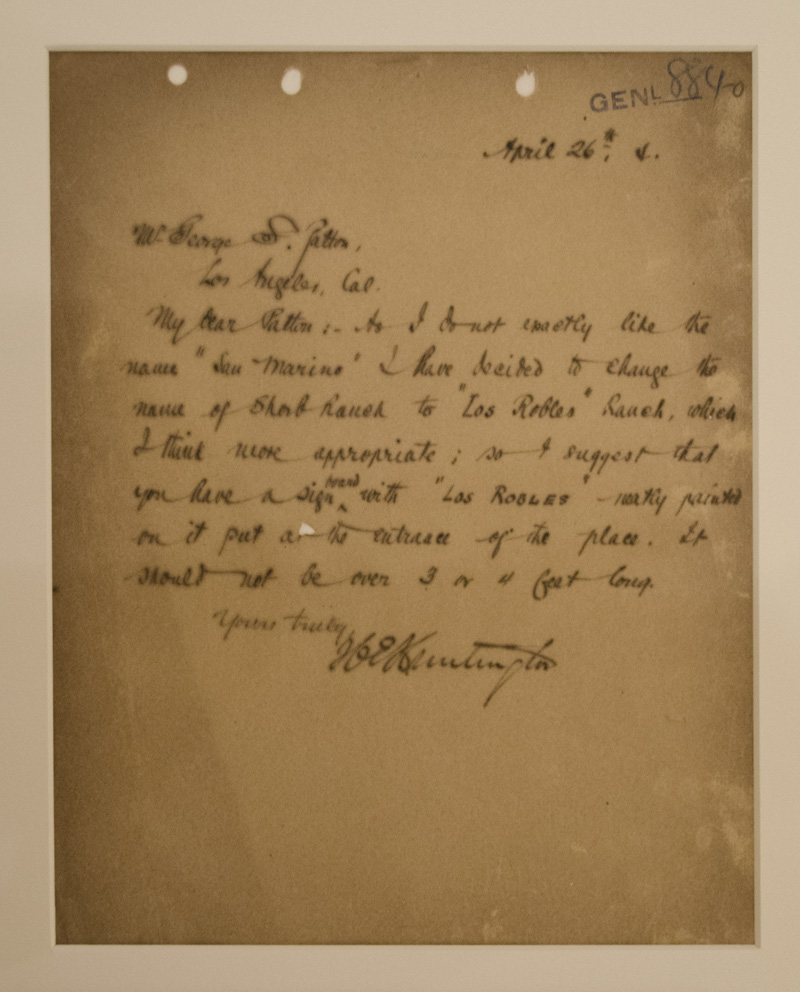 GENL 8840
April 26th, 4.
Mr George S. Patton,
Los Angeles, Cal.
My dear Patton :- As I do not exactly like the
name "San Marino" I have decided to change the
name of Shorb Ranch to "Los Robles" Ranch, which
I think more appropriate ; so I suggest that
you have a sign board with "LOS ROBLES" neatly painted
on it put at the entrance of the place. It
should not be over 3 or 4 feet long.
Yours truly,
HEHuntington